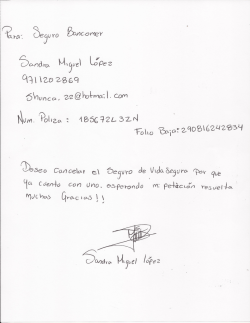 Para: Seguro Bancomer
Sandra Miguel López
9711202869
Shunca.22@hotmail.com
Num. Poliza: 185672L32N
Folio Baja: 240816242834
Deseo Cancelar el Seguro de Vida Segura por que
ya cuento con uno. esperando mi petición resuelta
muchas Gracias!!
Sandra Miguel López